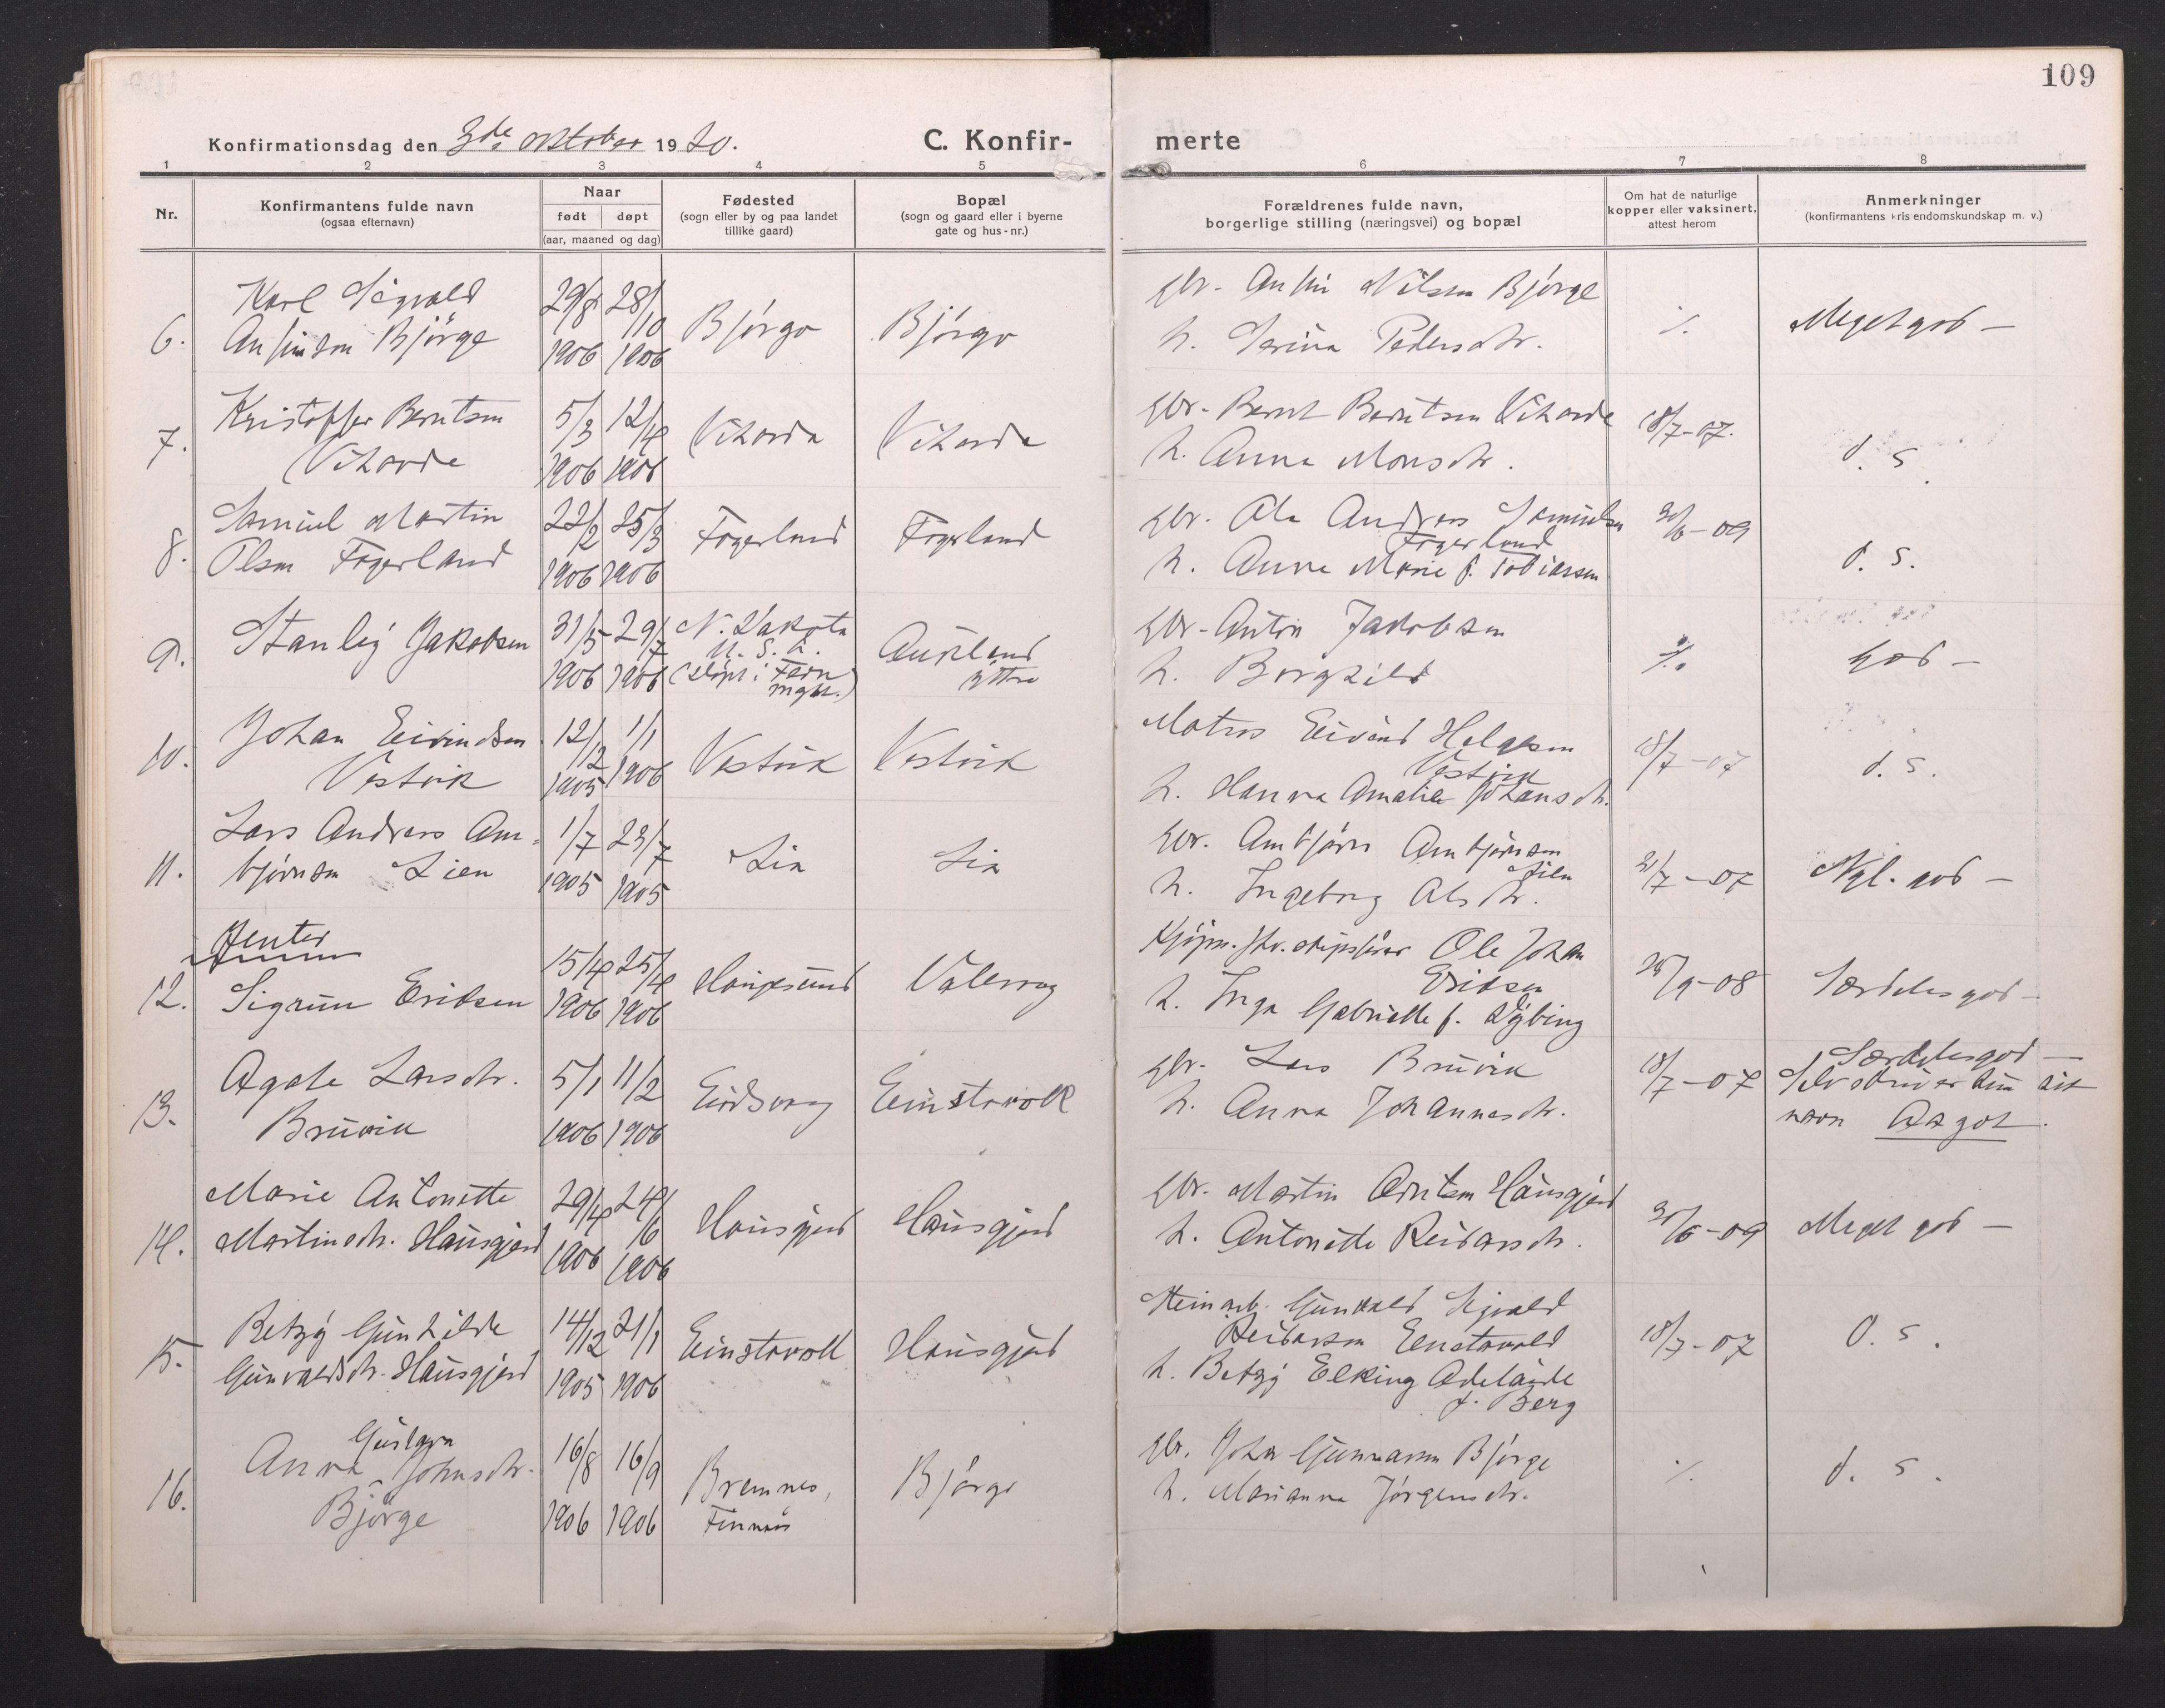 109
Konfirmationsdag den 3de oktober 1920.
C. Konfir-
merte
1 2 3 4 5 6 7 8
Nr.
Konfirmantens fulde navn
(ogsaa efternavn)
Naar
født døpt
(aar, maaned og dag)
Fødested
(sogn eller by og paa landet
tillike gaard)
Bopæl
(sogn og gaard eller i byerne
gate og hus-nr.)
Forældrenes fulde navn,
borgerlige stilling (næringsvei) og bopæl
Om hat de naturlige
kopper eller vaksinert,
attest herom
Anmerkninger
(konfirmantens kristendomskundskap m. v.)
6.
Karl Sigvald
Anfinsen Bjørge
29/8 1906
28/10 1906
Bjørge
Bjørge
Gbr. Anfin Nilsen Bjørge
h. Serina Pedersdtr.
%
Meget god —
7.
Kristoffer Berntsen
Vihovde
5/3 1906
12/4 1906
Vihovda
Vihovde
Gbr. Bernt Berntsen Vihovde
h. Anna Monsdtr.
18/7-07.
d. s.
8.
Samuel Martin
Olsen Fagerland
22/2 1906
25/3 1906
Fagerland
Fagerland
Gbr. Ole Andreas Samuelsen
Fagerland
h. Anna Marie f. Tobiassen
30/6-09
d. s.
9.
Stanley Jakobsen
31/5 1906
29/7 1906
N. Dakota
U. S. A.
(døpt i Førde
mgh.)
Aukland
yttre
Gbr. Anton Jakobsen
h. Borghild
%
god —
10.
Johan Eivindsen
Vestvik
12/12 1905
1/1 1906
Vestvik
Vestvik
Matros Eivind Helgesen
Vestvik
h. Hanna Amalie Johansdtr.
18/7-07
d. s.
11.
Lars Andreas Am-
bjørnsen Lien
1/7 1905
23/7 1905
Lia
Lia
Gbr. Ambjørn Ambjørnsen
Lien
h. Ingeborg Olsdtr.
31/7-07
Ngl. god —
Jenter
12.
Sigrun Eriksen
15/4 1906
25/4 1906
Haugesund
Valevaag
Kjøpm. fhv. skipsfører Ole Johan
Eriksen
h. Inga Gabrielle f. Dybing
28/9-08
Særdeles god —
13.
Agate Larsdtr.
Bruvik
5/1 1906
11/2 1906
Eidsvaag
Einstavoll
Gbr. Lars Bruvik
h. Anna Johannesdtr.
18/7-07
Særdeles god —
Selv skriver hun sit
navn Aagot.
14.
Marie Antonette
Martinsdtr. Hausgjerd
29/4 1906
24/6 1906
Hausgjerd
Hausgjerd
Gbr. Martin Arntsen Hausgjerd
h. Antonette Reidarsdtr.
30/6-09
Meget god —
15.
Betzy Gunhilde
Gunvaldsdtr. Hausgjerd
14/12 1905
21/1 1906
Einstavoll
Hausgjerd
Steinarb. Gunvald Sigvald
Reidarsen Einstavold
h. Betzy Elking Adelaide
f. Berg
18/7-07
d. s.
16.
Gustava
Anna Johnsdtr.
Bjørge
16/8 1906
16/9 1906
Bremnes,
Finnaas
Bjørge
Gbr. John Gunnarsen Bjørge
h. Marianna Jørgensdtr.
%
d. s.